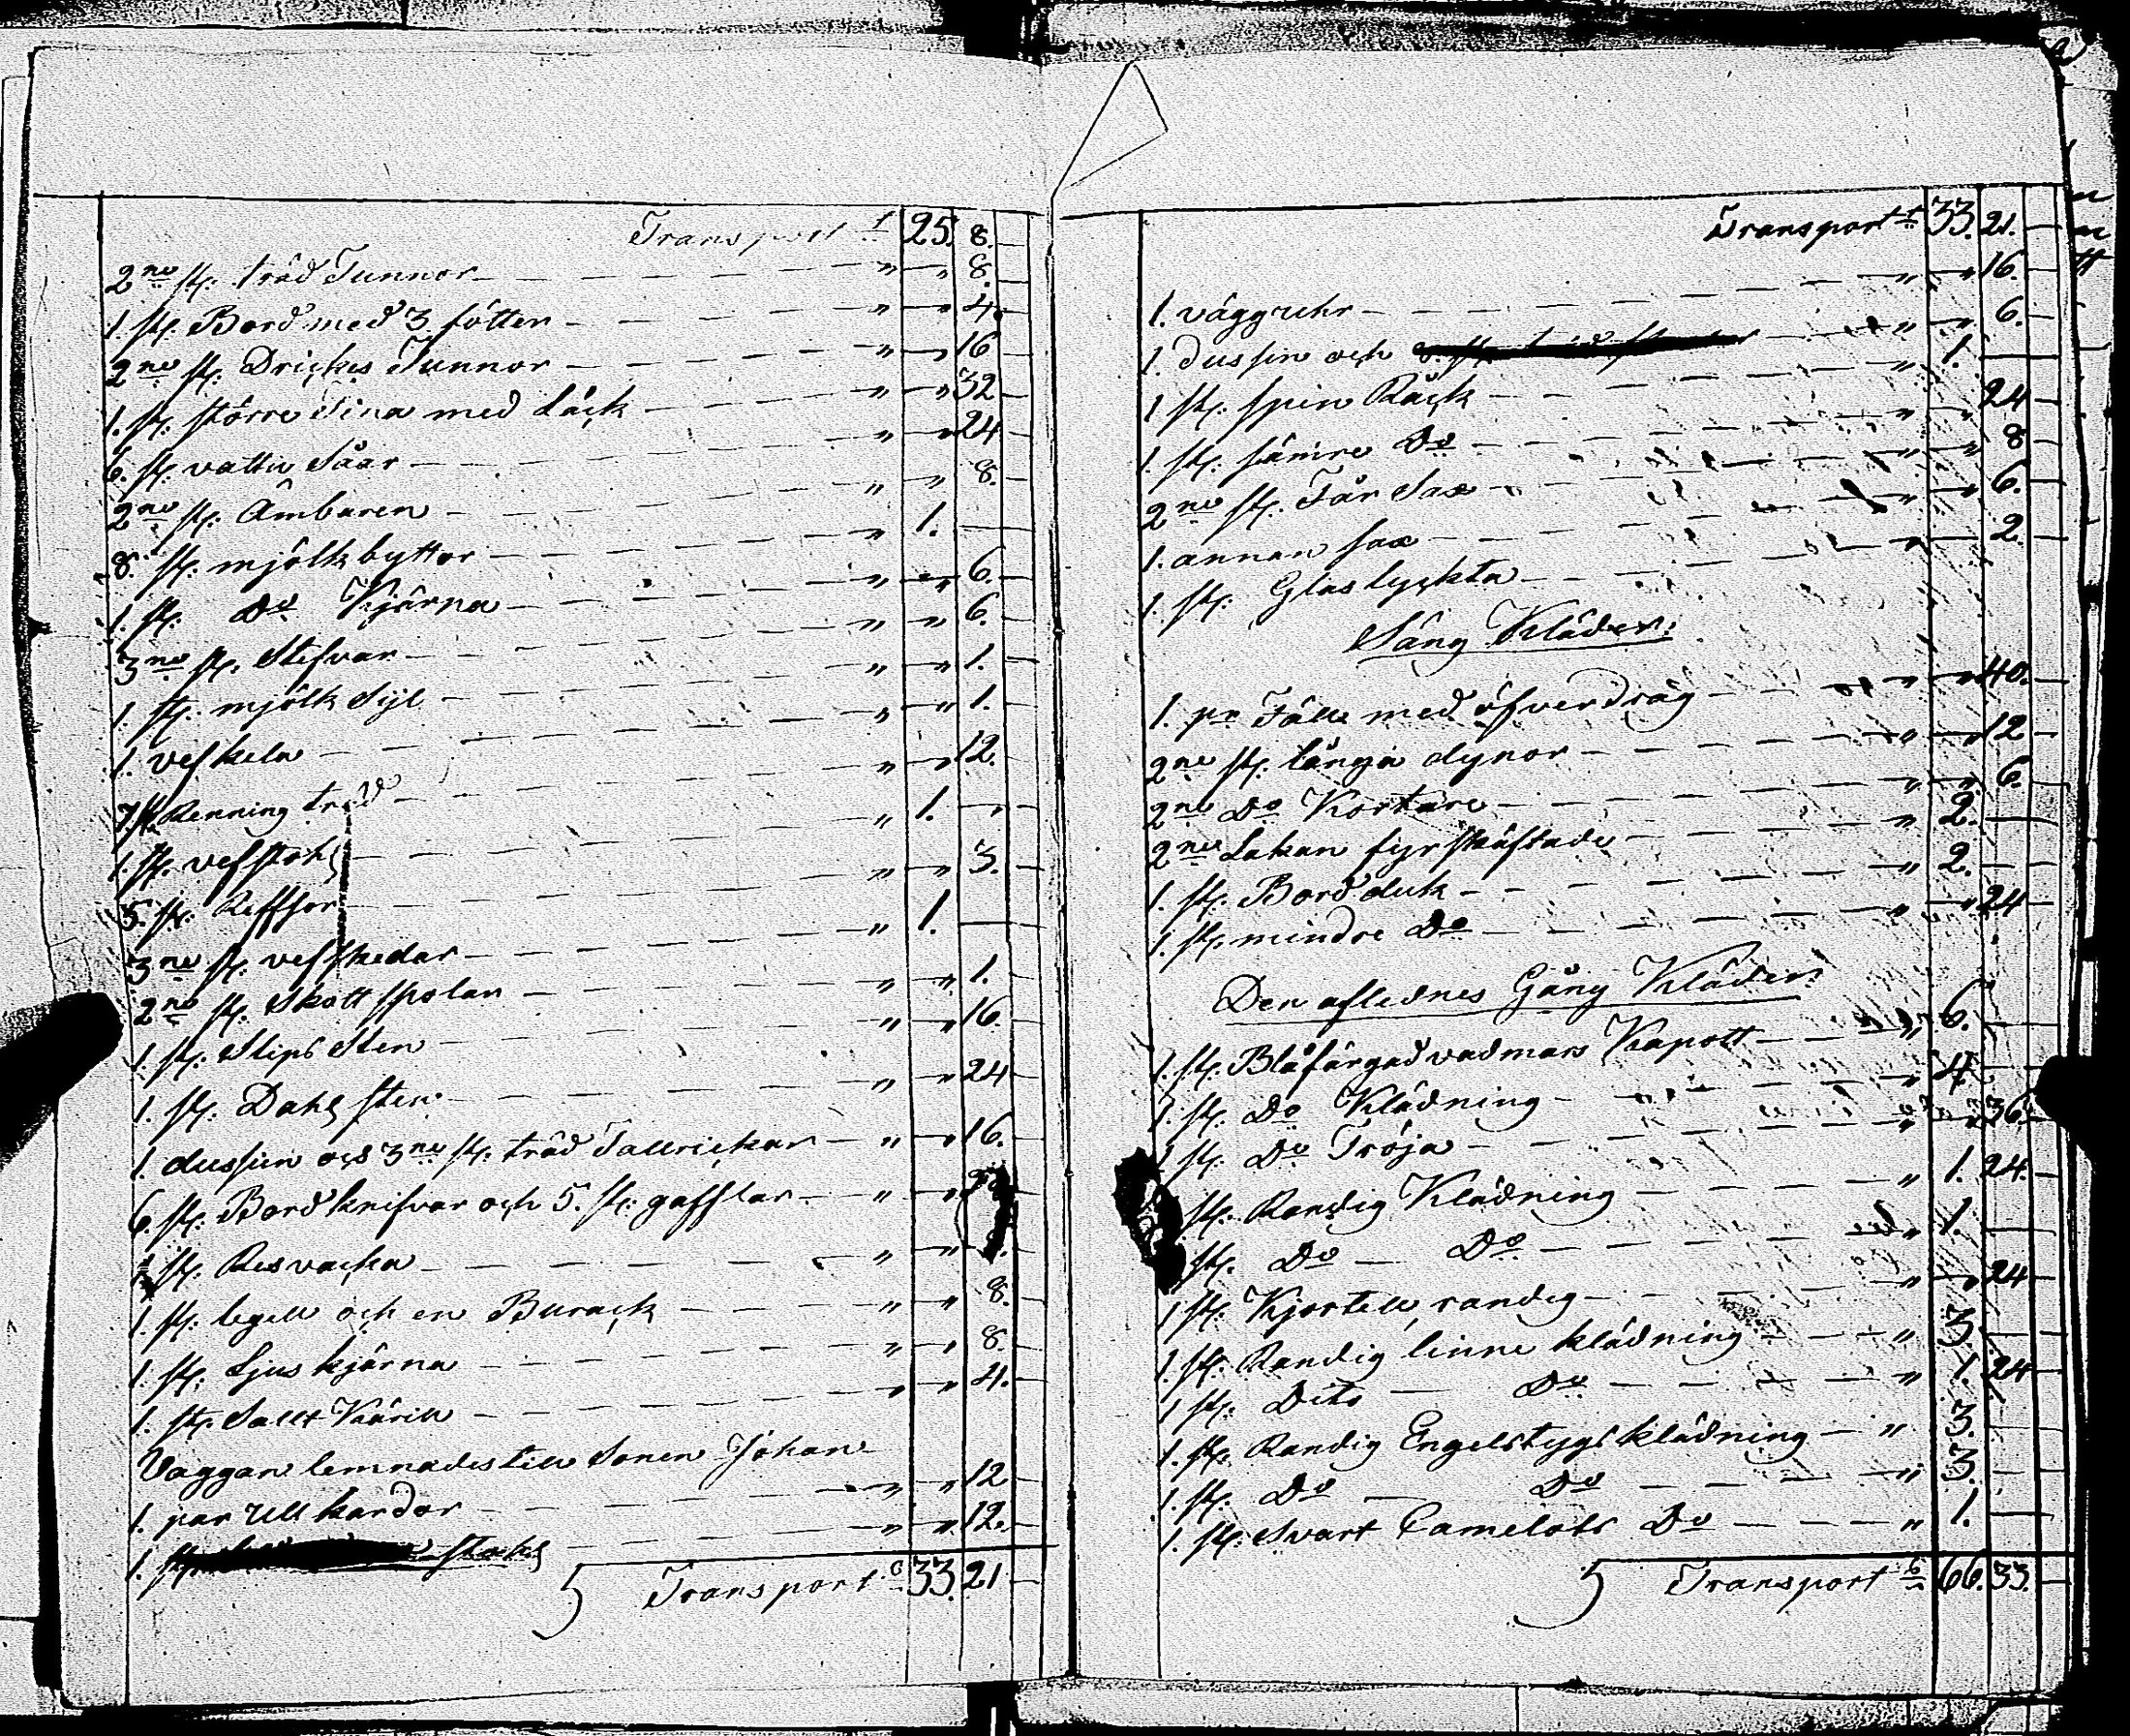 Transport t 25. 8.
2ne st. träd Tunnor — " — " 8.
1. st. Bord med 3 fötter — " — " 4.
2ne st. Drickes Tunnor — " — " 16
1. st. större Tina med Låck — " — " 32
6. st. vattu Såar — " — " 24
2ne st. Ämbaren — " — " 8.
8. st. mjölkbyttor — " 1. —
1. st. Do Kjärna — " — " 6.
3ne st. Stefvar — " — " 6.
1. st. mjölk Sijl — " — " 1.
1. vefkela — " — " 1.
7. st. Renning träd — " — " 12.
1. st. vefstohl — " 1. —
5. st. Reffsor — " — " 3.
3ne st. vefskedar — " 1. —
2ne st. Skottspolar — " — " 1.
1. st. Slips Sten — " — " 16.
1. st. Dahl sten — " — " 24
1. dussin och 3ne st. träd Tallrickar — " — " 16.
6. st. Bord knifvar och 5. st. gafflar — " — "
1 st. Resvacka — " — "
1. st. legell och en Burack — " — " 8.
1. st. Ljus kjärna — " — " 8.
1. st. Sallt Kärill — " — " 4.
Vaggan lemnades till Sonen Johan
1. par Ull kardor — " — " 12
1. — " — " 12.
Transport 33. 21
Transport t 33. 21.
1. vägguhr — " — " 16.
1. dussin och — " — " 6.
1 st. spin Råck — " 1. —
1. st. sämre Do — " — " 24
2ne st. Får Sax — " — " 8
1. annan sax — " — " 6.
1. st. Glas lyckta — " — " 2.
Säng Kläder:
1. pr Fäll med öfverdrag — " — " 40.
2ne st. långa dynor — " — " 12
2ne Do Kortare — " — " 6.
2ne Lakan fyrskäftade — " 2. —
1. st. Bord duk — " 2. —
1. st. mindre Do — " — " 24
Den aflednes Gång Kläder:
1. st. Blåfärgad vadmars Kapott — " 6. —
1. st. Do Klädning — " 4. —
1 st. Do Tröja — " — " 36.
st. Randig Klädning — " 1. 24.
st. Do — Do — " 1. —
1 st. Kjortell, randig — " — " 24
1. st. Randig linne klädning — " 3. —
1 st. Dito — Do — " 1. 24
1. st. Randig Engelstygs klädning — " 3. —
1. st. Do — Do — " 3. —
1. st. Svart Camelots Do — " 1. —
Transport 66. 33.